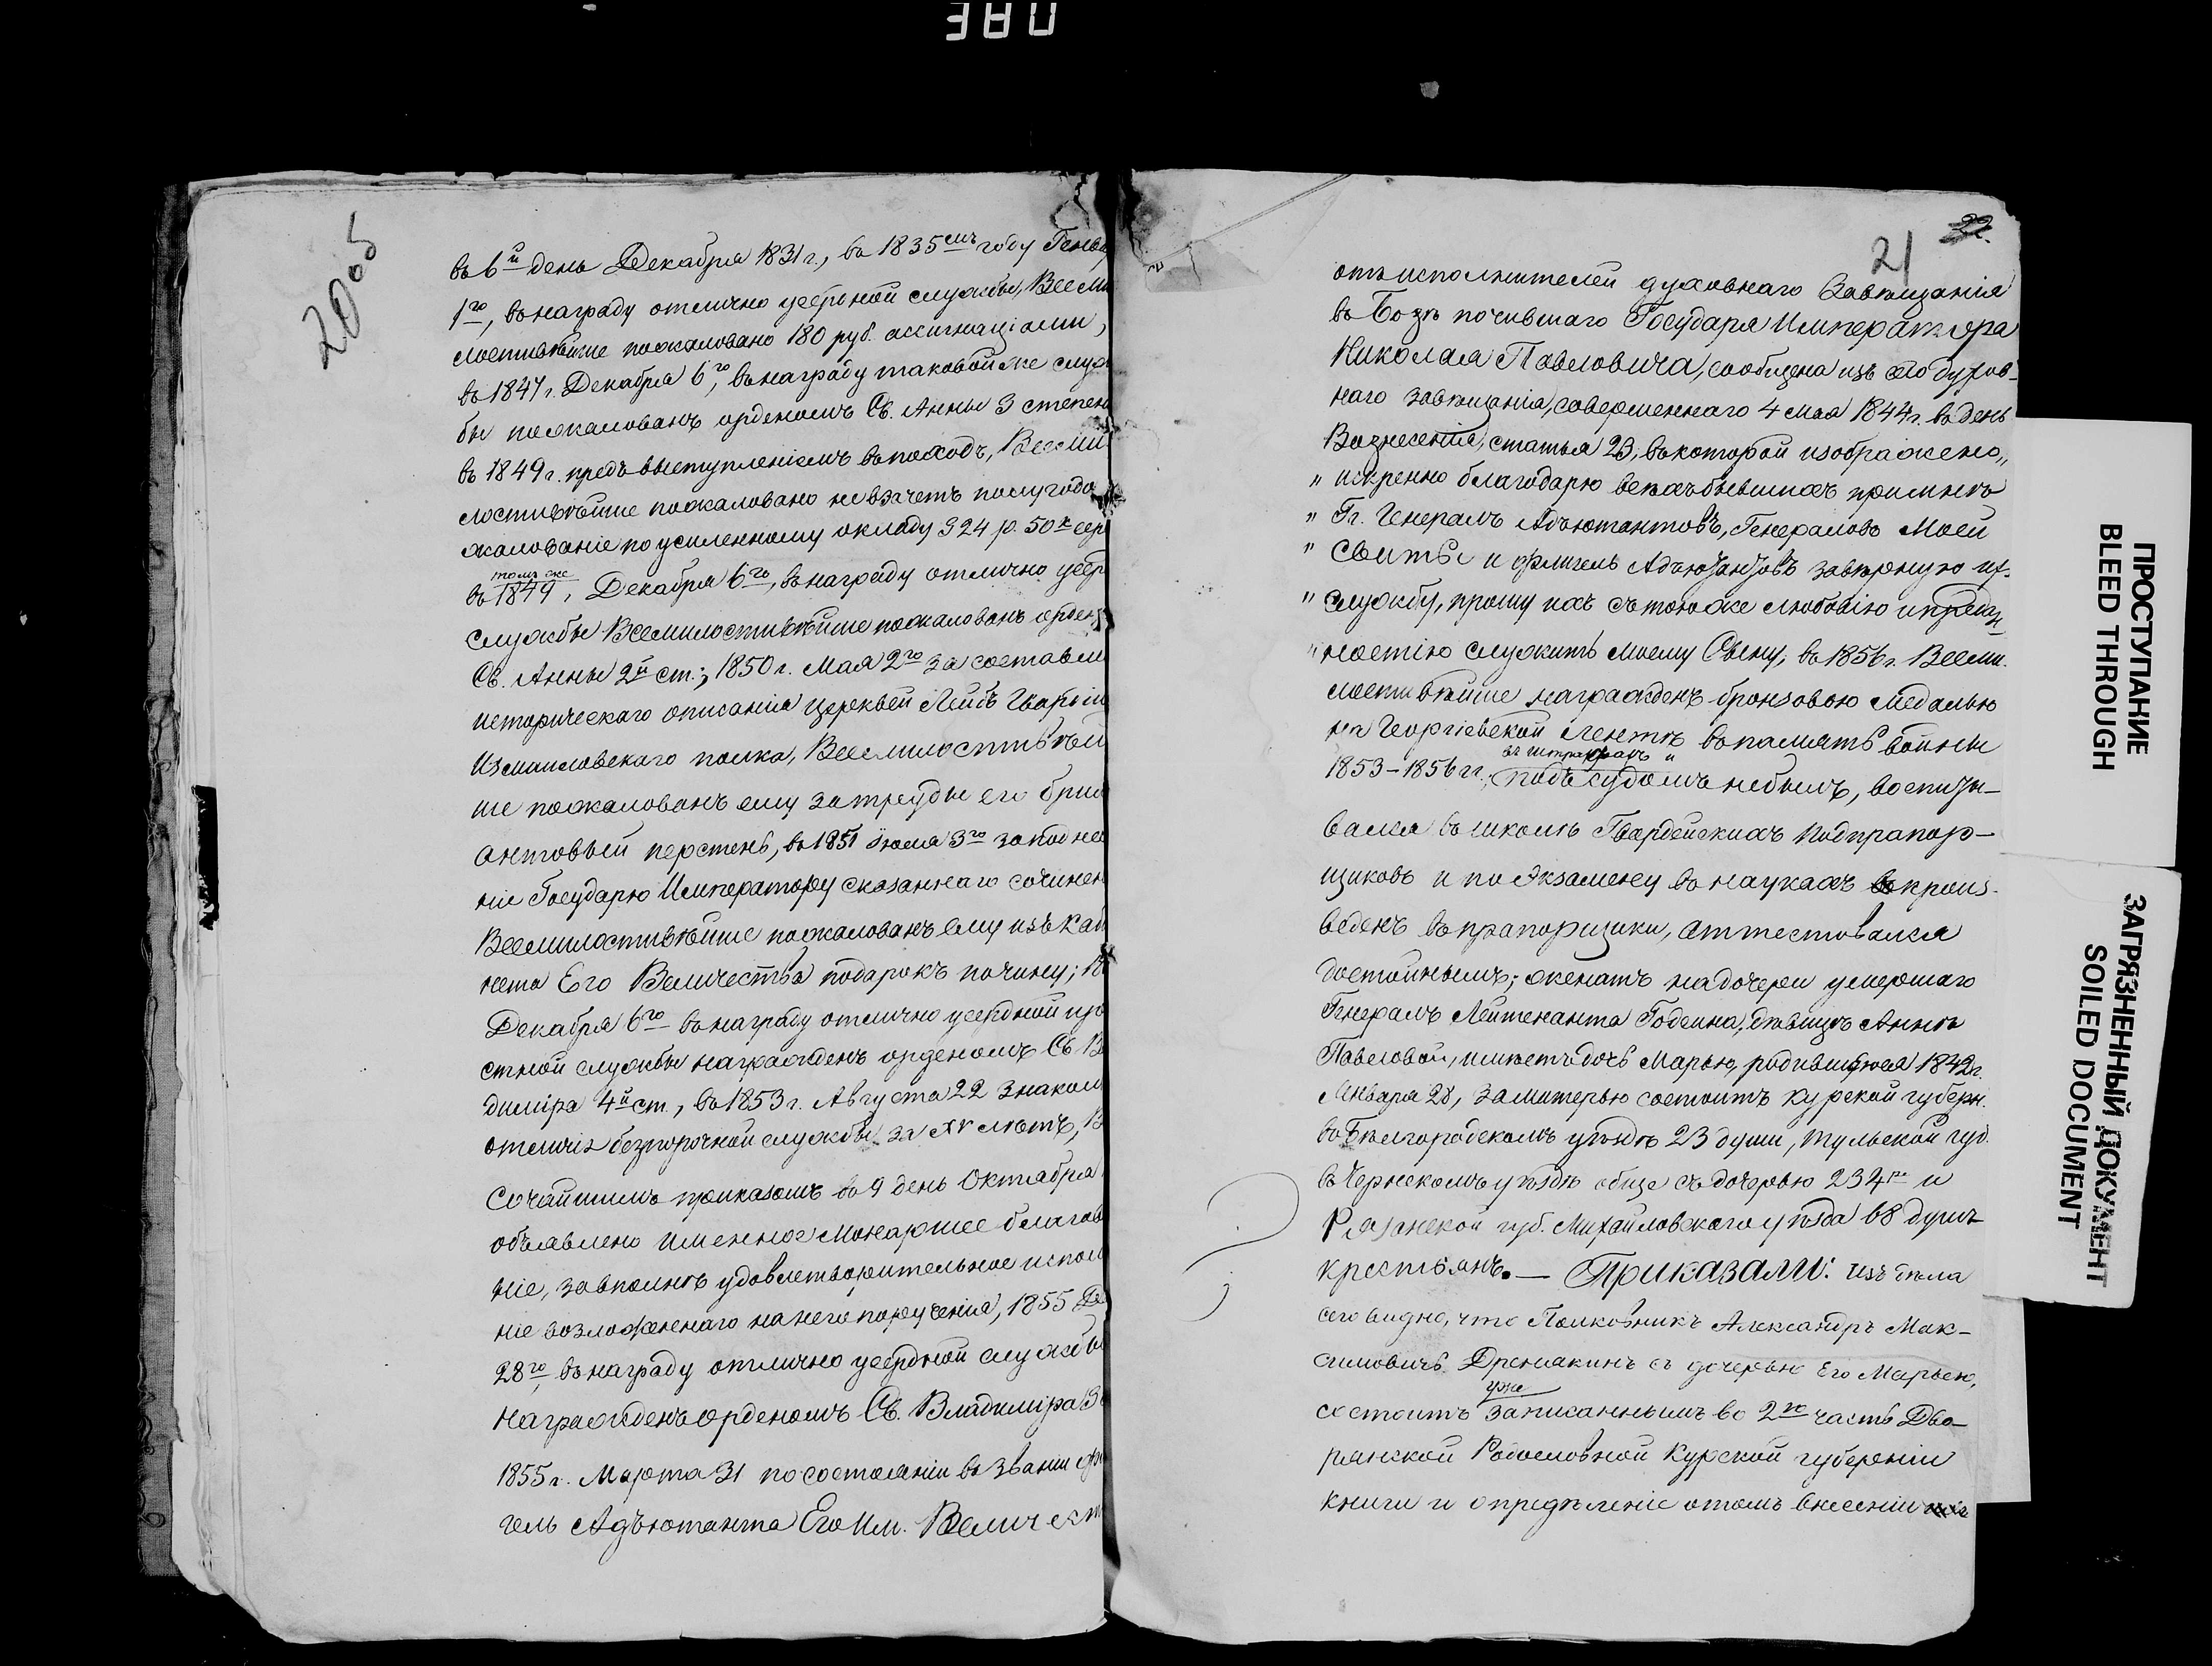 20 об
въ 6й день Декабря 1831 г., въ 1835мъ году Генва
1го, въ награду отлично усердной службы, Всеми
лостивѣйше пожаловано 180 руб. ассигнаціями,
въ 1847 г. Декабря 6го, въ награду таковой же служ
бы пожалованъ орденомъ Св. Анны 3 степени
въ 1849 г. предъ выступленіемъ въ походъ, Всеми
лостивѣйше пожаловано не въ зачетъ полугодо
жалованіе по усиленному окладу 324 р. 50 к сер
томъ же
въ 1849, Декабря 6го, въ награду отлично усер
службы Всемилостивѣйше пожалованъ орден
Св. Анны 2й ст.; 1850 г. Мая 2го за составле
историческаго описанія церквей Лейбъ Гвардіи
Измаиловскаго полка, Всемилостивѣй
ше пожалованъ ему за труды его брил
антовый перстень, въ 1851 Іюля 3го за подне
ніе Государю Императору сказаннаго сочинен
Всемилостивѣйше пожалованъ ему изъ каби
нета Его Величества подарокъ по чину; 18
Декабря 6го въ награду отлично усердной
стной службы награжденъ орденомъ Св. В
диміра 4й ст., въ 1853 г. Августа 22 знаком
отличія безпорочной службы за XV лѣтъ, В
сочайшимъ приказомъ въ 9 день Октября
объявлено именное Монаршее благов
ніе, за вполнѣ удовлетворительное испол
ніе возложеннаго на него порученія, 1855 Де
28го, въ награду отлично усердной службы
награжденъ орденомъ Св. Владиміра 3
1855 г. Марта 31 по состоянію въ званіи фли
гель Адъютанта Его Им. Величест
21 22.
отъ исполнителей духовнаго Завѣщанія
въ Бозѣ почившаго Государя Императора
Николая Павловича, сообщена изъ его духов-
наго завѣщанія, совершеннаго 4 мая 1844 г. въ день
Вознесенія, статья 23, въ которой изображено,,
" искренно благодарю всѣхъ бывшихъ при мнѣ
" Гг. Генералъ Адъютантовъ, Генераловъ Моей
" Свиты и флигель Адъютантовъ за вѣрную их
" службу, прошу ихъ съ тою же любовію и предан-
" ностію служить моему Сыну; въ 1856 г. Всеми-
лостивѣйше награжденъ бронзовою Медалью
на Георгіевской лентѣ въ память войны
въ штрафахъ и
1853-1856 гг., подъ судомъ небылъ, воспиты-
вался въ школѣ Гвардейскихъ подпрапор-
щиковъ и по экзамену въ наукахъ произ-
веденъ въ прапорщики, аттестовался
достойнымъ; женатъ на дочери умершаго
Генералъ Лейтенанта Годеина, дѣвицѣ Аннѣ
Павловой, имѣетъ дочь Марью, родившуюся 1842 г.
Января 28, за матерью состоитъ Курской губерн.
въ Бѣлгородскомъ уѣздѣ 23 души, Тульской губ.
въ Чернскомъ уѣздѣ обще съ дочерью 234 и
Рязанской губ. Михайловскаго уѣзда 68 душъ
крестьянъ. — Приказали: изъ дѣла
сего видно, что Полковникъ Александръ Мак-
симовичъ Дренякинъ съ дочерью Его Марьею,
уже
состоитъ записаннымъ во 2го часть Дво-
рянской Родословной Курской губерніи
книги и опредѣленіе о томъ внесеніи
ПРОСТУПАНИЕ
BLEED THROUGH
ЗАГРЯЗНЕННЫЙ ДОКУМЕНТ
SOILED DOCUMENT